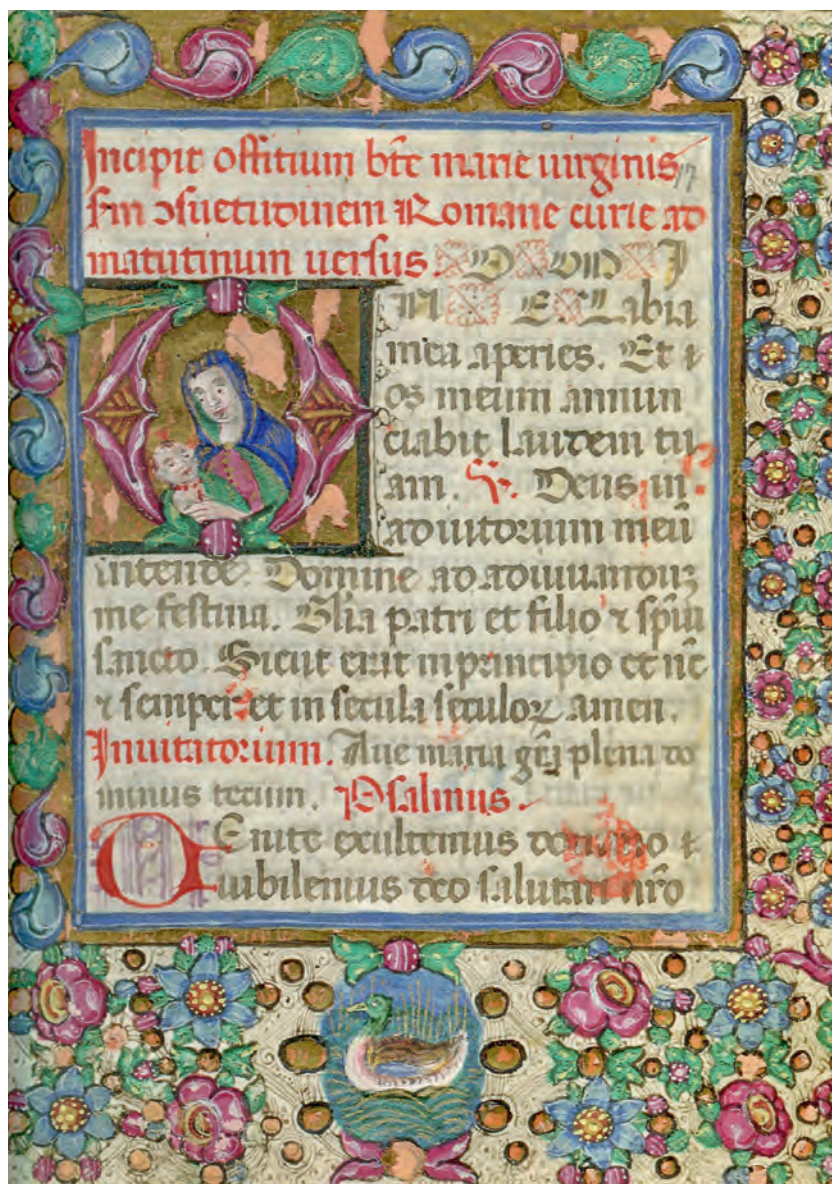 Incipit offitium bte marie uirginis 17
sm ɔsuetudinem Romane curie ad
matutinum uersus. D O M I
N E Labia
mea aperies. Et ⁊
os meum annun
ciabit laudem tu
am. ℣. Deus in
adiutorium meū
intende. Domine ad adiuuanduꝫ
me festina. Glia patri et filio ⁊ spūi
sancto. Sicut erat in principio et nc̄
⁊ semper et in secula seculoꝝ amen.
Inuitatorium. Aue maria gr̄a plena do
minus tecum. Psalmus.
Uenite exultemus domino ⁊
iubilemus deo salutari nr̄o